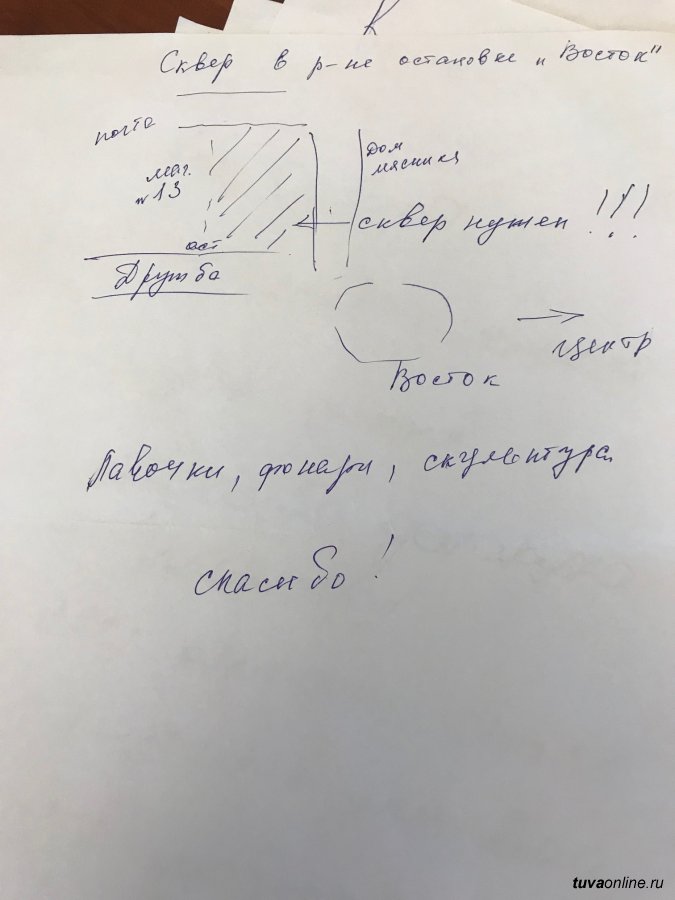 Сквер в р-не остановке „Восток"
почта
маг.
№13
ост
Дружба
Дом
мясника
сквер нужен !!!
Центр
Восток
Лавочки, фонари, скульптура
спасибо!
tuvaonline.ru